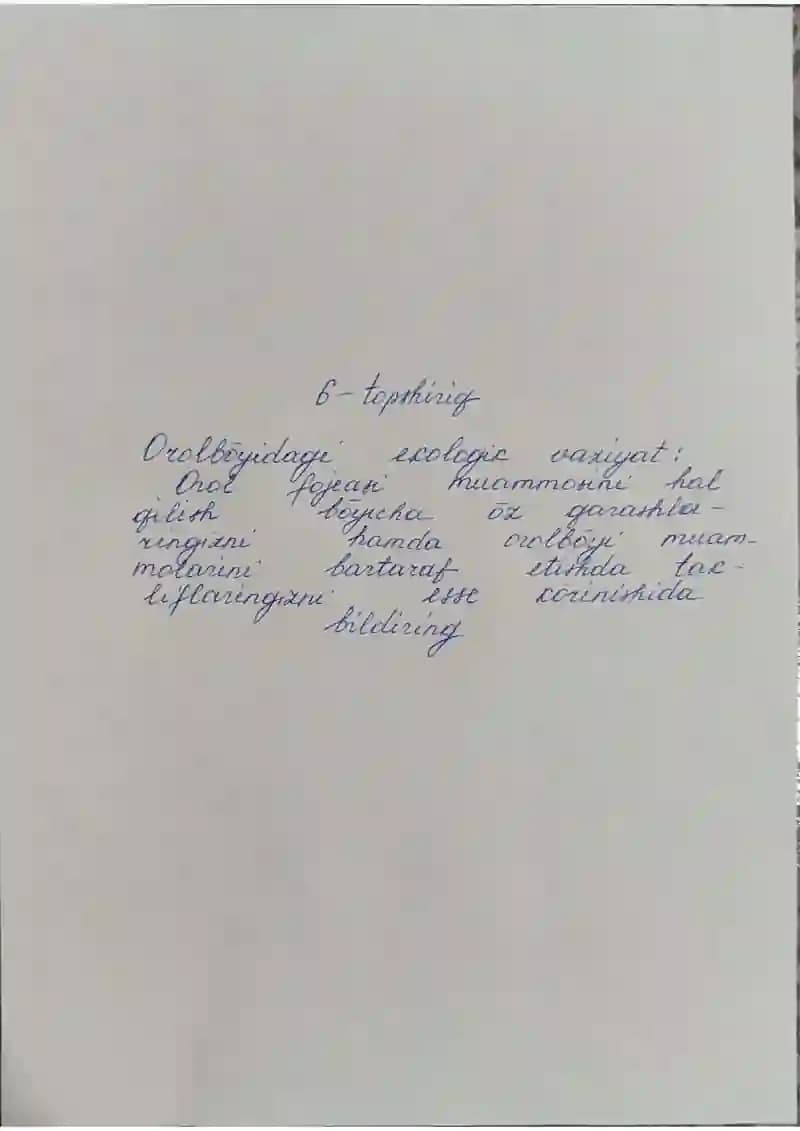 6-topshiriq
Orolbōyidagi ekologik vaziyat:
Orol fojeasi muammosini hal
qilish bōyicha ōz qarashla-
ringizni hamda orolbōyi muam-
molarini bartaraf etishda tak-
liflaringizni esse kōrinishida
bildiring